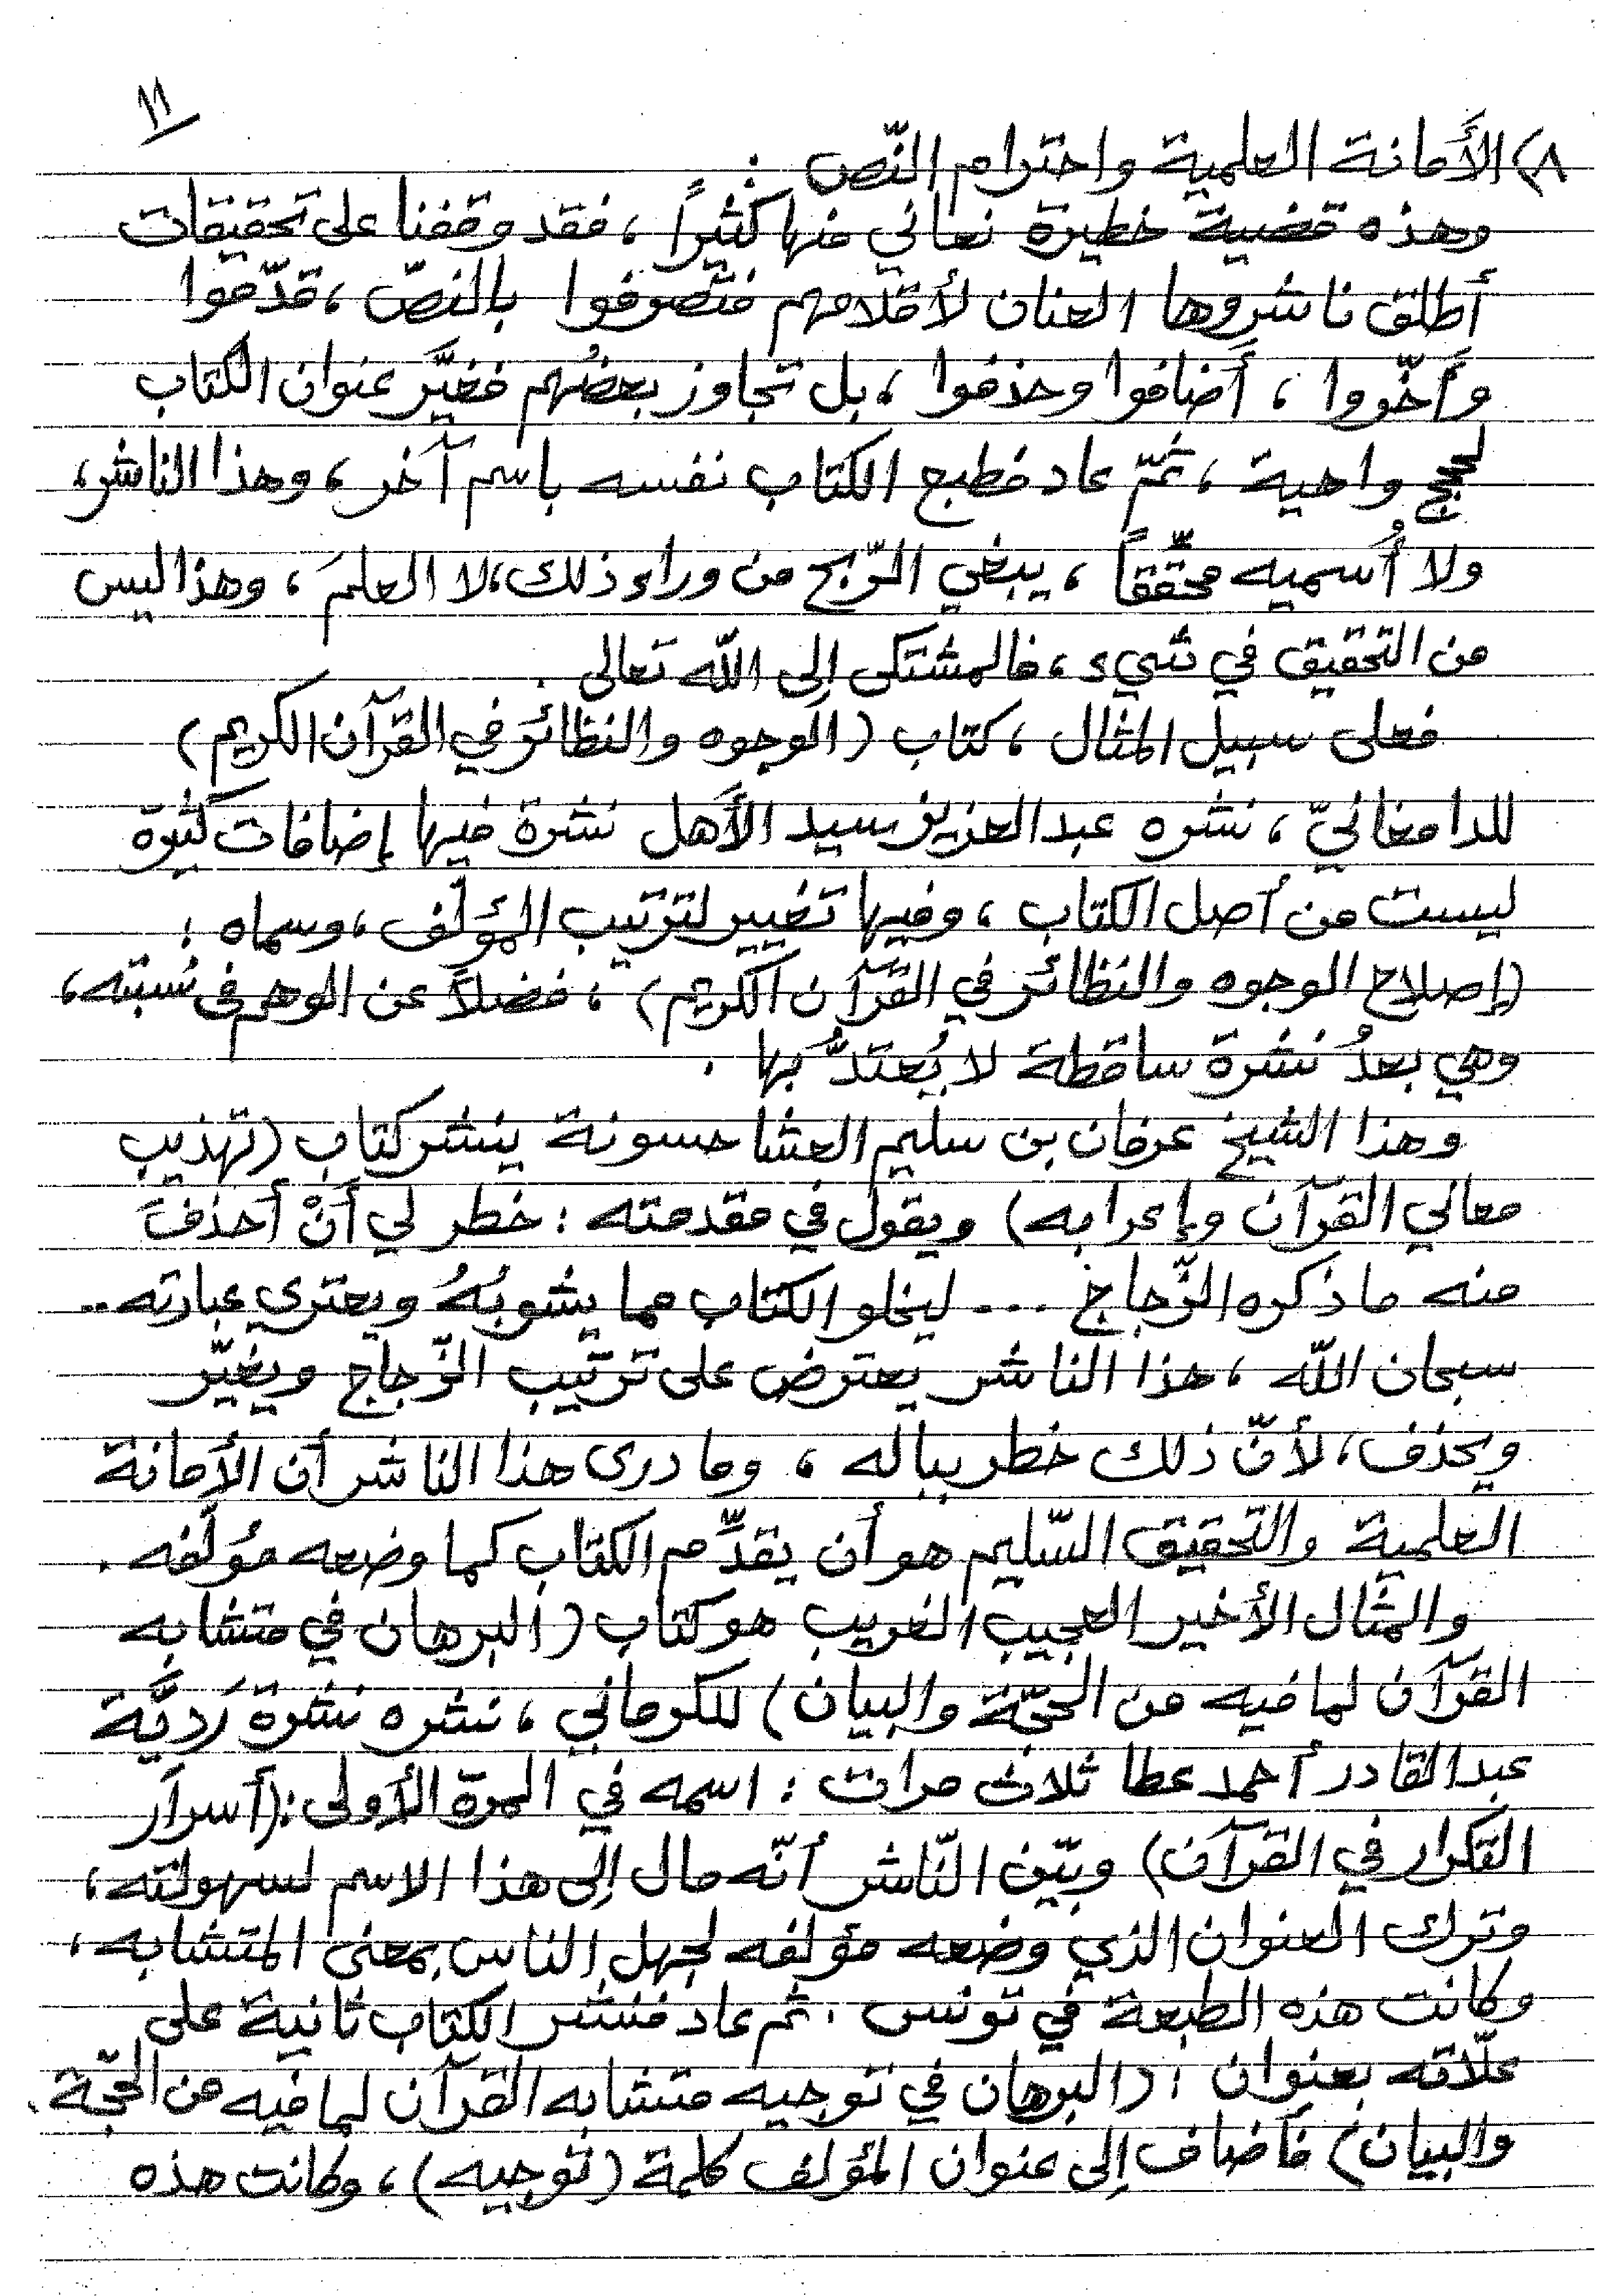 ١١
٨) الأَمانة العلمية واحترام النّص :
وهذه قضية خطيرة نعاني منها كثيراً ، فقد وقفنا على تحقيقات
أطلق ناشروها العنان لأقلامهم فتصرفوا بالنصّ ، قدّموا
وأَخّروا ، أَضافوا وحذفوا ، بل تجاوز بعضُهم فغيَّر عنوان الكتاب
لحجج واهية ، ثمّ عاد فطبع الكتاب نفسه باسم آخر ، وهذا الناشر،
ولا أُسميه محقّقاً ، يبغي الرّبح من وراء ذلك ، لا العلمَ ، وهذا ليس
من التحقيق في شيء ، فالمشتكى إلى اللّه تعالى .
فعلى سبيل المثال ، كتاب (الوجوه والنظائر في القرآن الكريم)
للدامغانيّ ، نشره عبد العزيز سيد الأَهل نشرة فيها إضافات كثيرة
ليست من أصل الكتاب ، وفيها تغيير لترتيب المؤلِّف ، وسماه :
(إصلاح الوجوه والنظائر في القرآن الكريم) ، فضلاً عن الوهم في نسبته ،
وهي بعدُ نشرة ساقطة لا يُعتدُّ بها .
وهذا الشيخ عرفان بن سليم العشا حسونة ينشر كتاب (تهذيب
معاني القرآن وإعرابه) ويقول في مقدمته : خطر لي أَنْ أحذفَ
منه ما ذكره الزّجاج ... ليخلو الكتاب مما يشوبُهُ ويعتري عبارته ..
سبحان اللّه ، هذا الناشر يعترض على ترتيب الزّجاج ويغيّر
ويحذف ، لأنّ ذلك خطر بباله ، وما درى هذا الناشر أن الأمانة
العلمية والتحقيق السّليم هو أن يقدِّم الكتاب كما وضعه مؤلِّفه .
والمثال الأخير العجيب الغريب هو كتاب (البرهان في متشابه
القرآن لما فيه من الحجّة والبيان) للكرماني ، نشره نشرة رَديَّة
عبد القادر أحمد عطا ثلاث مرات : اسمه في المرة الأولى : (أسرار
التكرار في القرآن) وبيّن النّاشر أنّه مال إلى هذا الاسم لسهولته ،
وترك العنوان الذي وضعه مؤلفه لجهل الناس بمعنى المتشابه ،
وكانت هذه الطبعة في تونس . ثم عاد فنشر الكتاب ثانية على
علّاته بعنوان : (البرهان في توجيه متشابه القرآن لما فيه من الحجّة
والبيان) فأضاف إلى عنوان المؤلف كلمة (توجيه) ، وكانت هذه